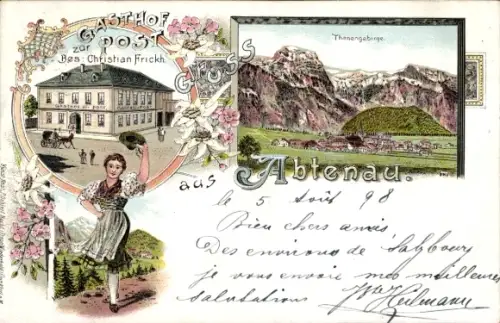 GASTHOF
zur POST
Bes: Christian Frickh.
Thenengebirge.
GRUSS
aus
Abtenau.
le 5 Août 98
Bien chers amis
Des environs de Salzbourg
je vous envoie mes meilleures
salutations
Heilmann